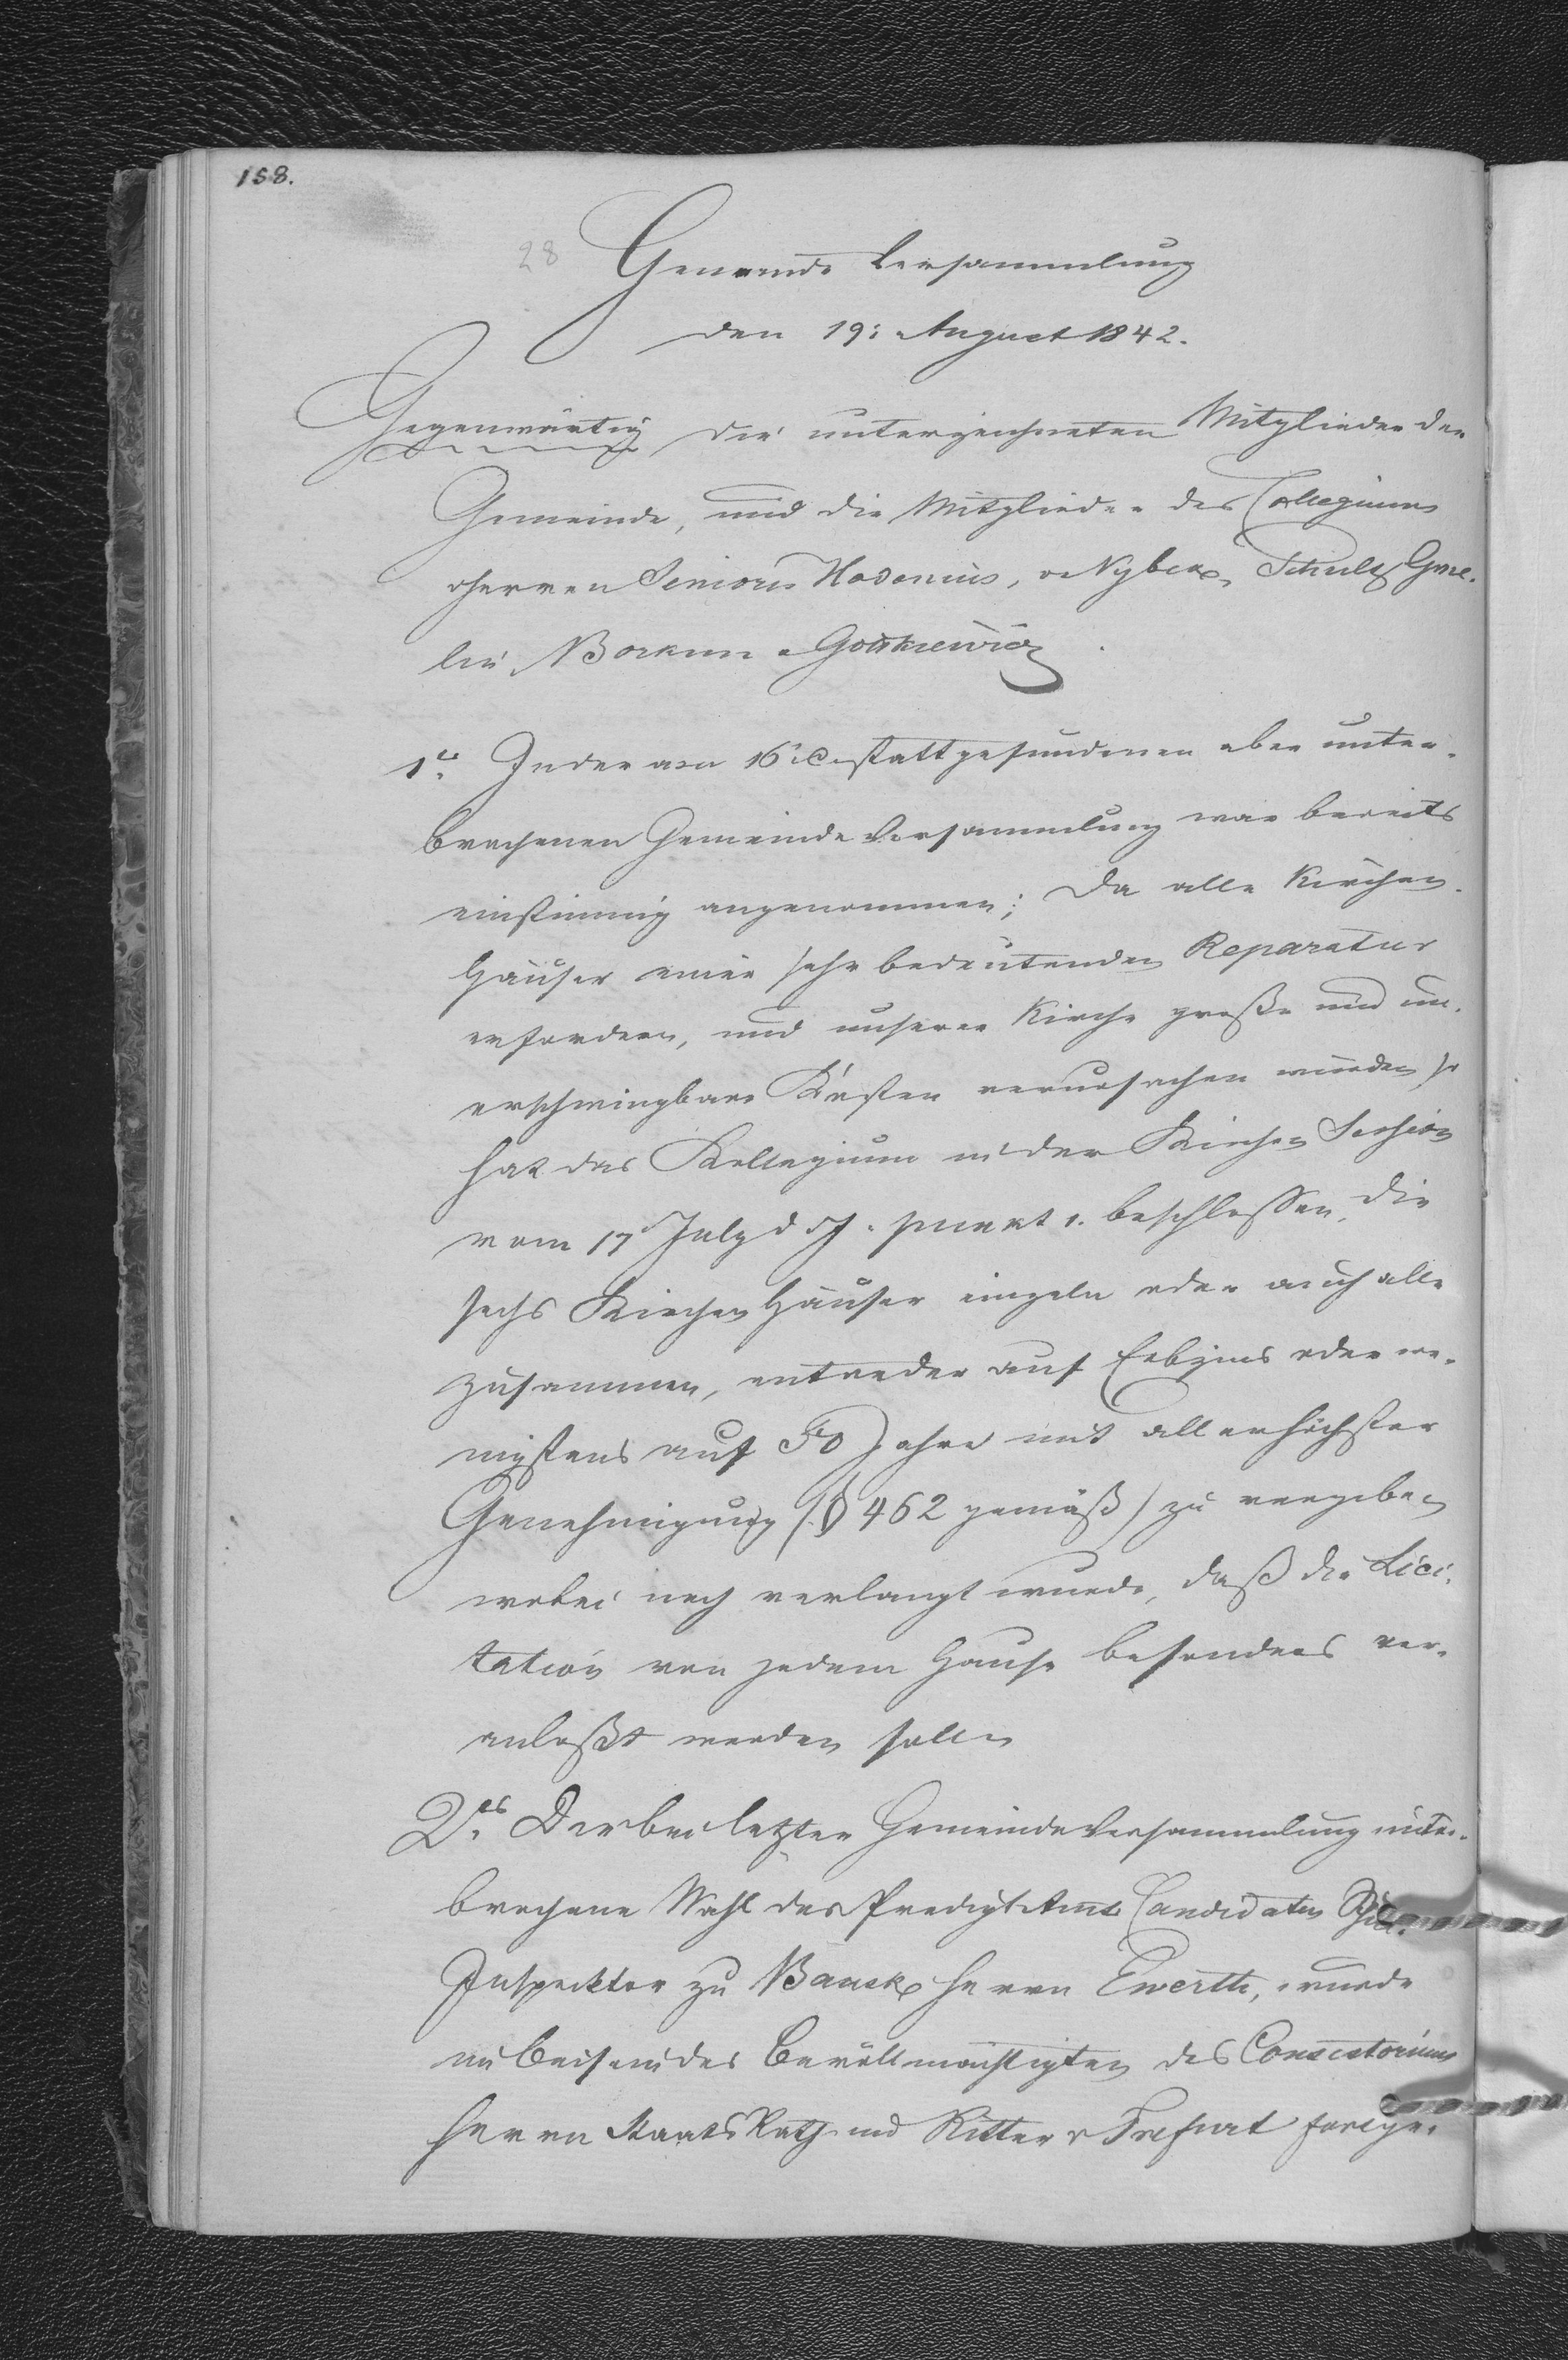 158.
28 Gemeinde Versammlung
den 19: August 1842.
Gegenwärtig die unterzeichneten Mitglieder der
Gemeinde, und die Mitglieder des Collegiums
Herren Seniores Hasenius, v Nyberg, Schultz Gme-
lin Borkum Gottkiewicz.
1. In der am 16: c. stattgefundenen aber unter-
brochenen Gemeinde Versammlung war bereits
einstimmig angenommen; Da alle Kirchen-
häuser einer sehr bedeutenden Reparatur
erfordern, und unserer Kirche große und un-
erschwingbare Kosten verursachen würden so
hat das Kollegium in der Kirchen Session
vom 17 July d J. punkt 1. beschlossen, die
sechs Kirchen Häuser einzeln oder auch alle
zusammen, entweder auf Erbzins oder we-
nigstens auf 50 Jahre mit allerhöchster
Genehmigung (§ 462 gemäß) zu vergeben
wobei noch verlangt wurde, daß die Lici-
tation von jedem Hause besonders ver-
anlaßt werden solle
2. Der bei letzter Gemeinde Versammlung unter-
brochene Wahl des Predigt Amts Candidaten
Inspektor zu Bausk Herrn Ewerth, wurde
im Beisein des Bevollmächtigten des Consistoriums
Herrn Staats Rath und Ritter v Trefurt fortge-